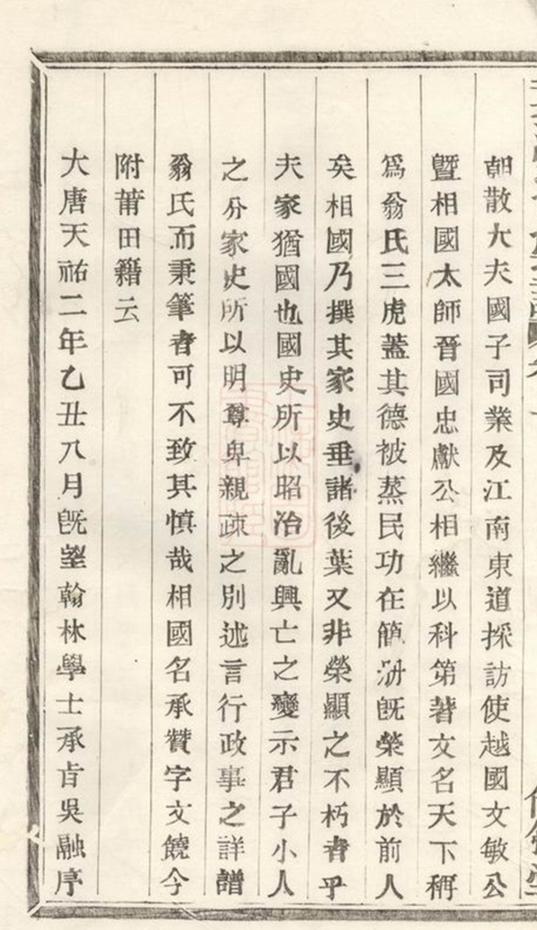 朝散大夫國子司業及江南東道採訪使越國文敏公
暨相國太師晉國忠獻公相繼以科第著文名天下稱
爲翁氏三虎蓋其德被蒸民功在簡冊旣榮顯於前人
矣相國乃撰其家史垂諸後葉又非榮顯之不朽者乎
夫家猶國也國史所以昭治亂興亡之變示君子小人
之分家史所以明尊卑親疎之別述言行政事之詳譜
翁氏而秉筆者可不致其慎哉相國名承贊字文饒今
附莆田籍云
大唐天祐二年乙丑八月旣望翰林學士承旨吳融序